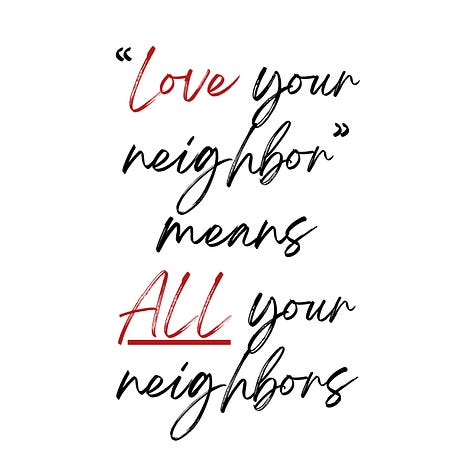 “Love your
neighbor”
means
ALL your
neighbors